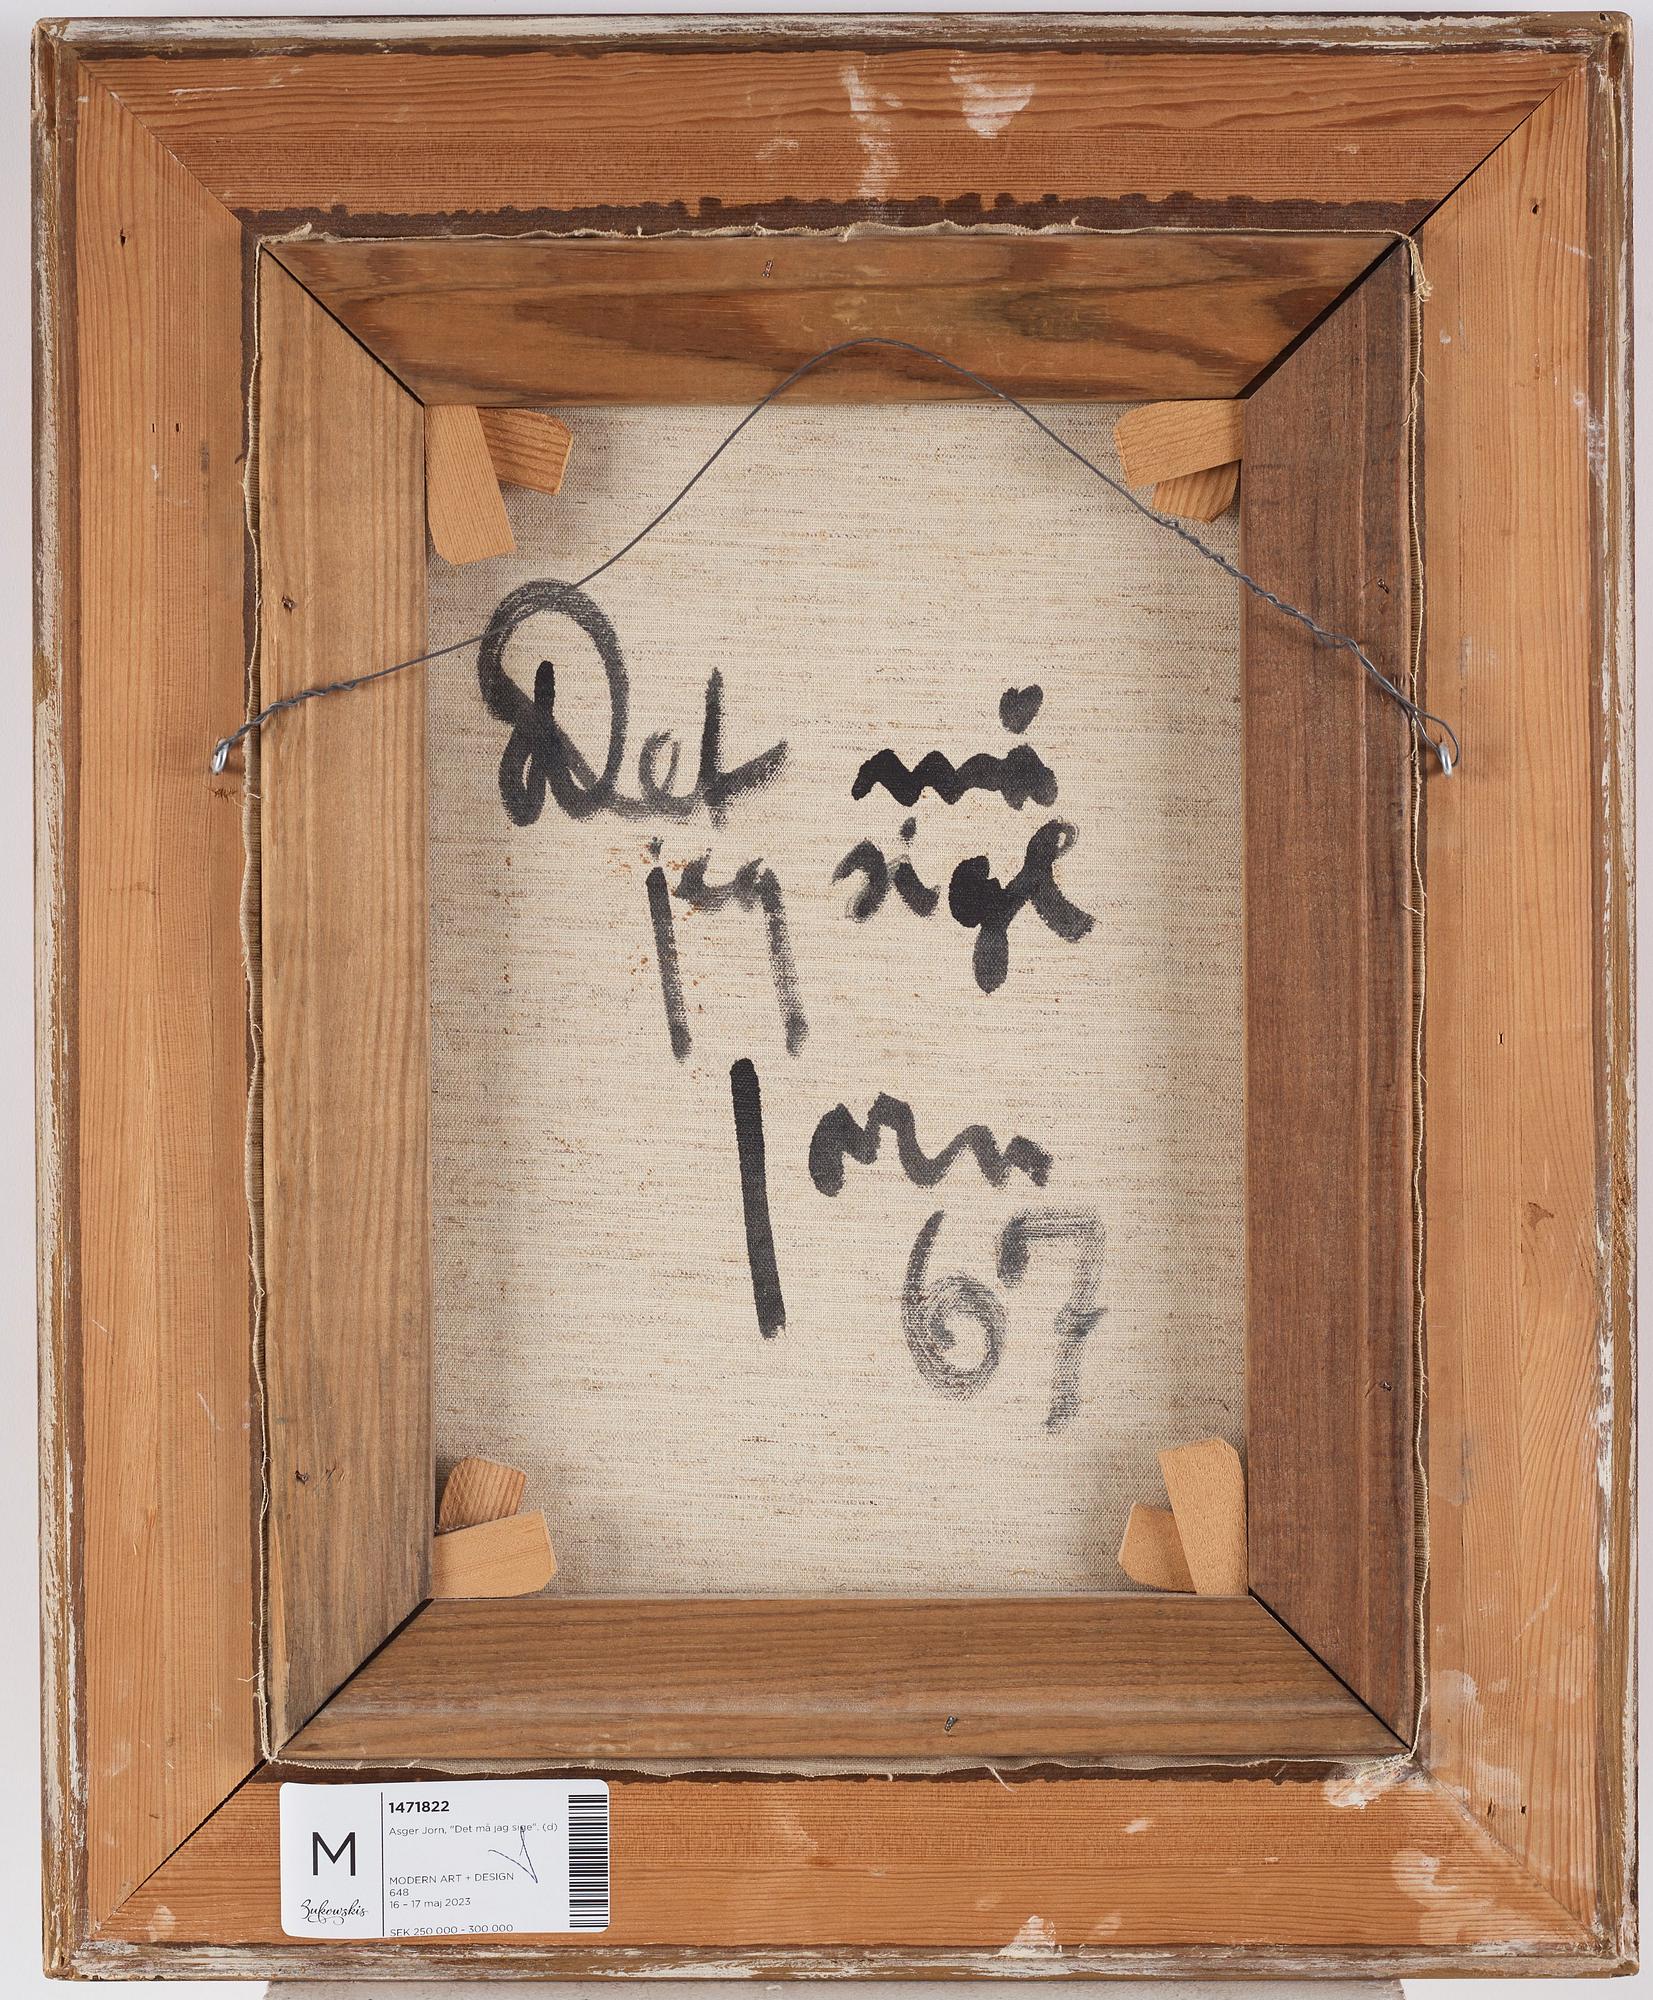 Det må
jeg sige
Jorn
67
1471822
Asger Jorn, "Det må jag sige". (d)
M
MODERN ART + DESIGN
648
16 – 17 maj 2023
Bukowskis
SEK 250 000 - 300 000